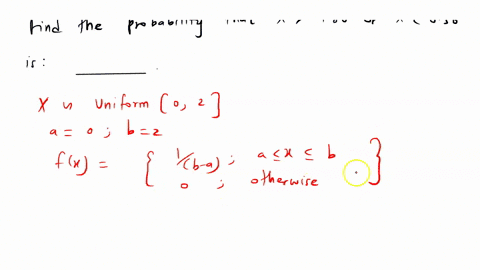 find the probability that
is: ________.
X ~ Uniform [0, 2]
a = 0 ; b = 2
f(x) = { 1/(b-a) ; a ≤ x ≤ b
0 ; otherwise }